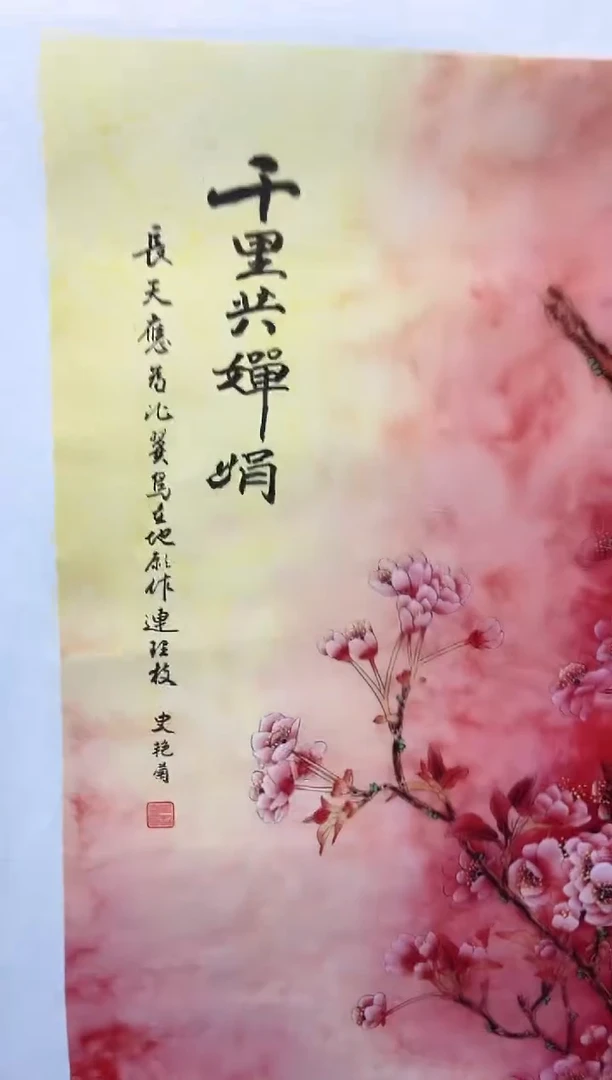 千里共嬋娟
長天應為比翼鳥在地願作連理枝 史艳菊